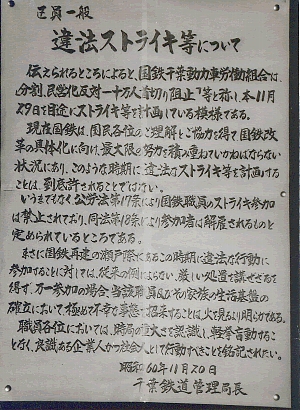 区員一般
違法ストライキ等について
伝えられるところによると、国鉄千葉動力車労働組合は、
分割、民営化反対、十万人首切り阻止等と称し、本11月
29日を目途にストライキ等を計画している模様である。
現在国鉄は、国民各位のご理解とご協力を得て国鉄改
革の具体化に向け、最大限の努力を積み重ねていかねばならない
状況にあり、このような時期に違法なストライキ等を計画する
ことは、到底許されることではない。
いうまでもなく公労法第17条により国鉄職員のストライキ参加
は禁止されており、同法第18条により参加者は解雇されるものと
定められているところである。
まさに国鉄再建の瀬戸際にあるこの時期に違法な行動に
参加することに対しては、従来の例によらない厳しい処置を講ぜざるを
得ず、万一参加の場合、当該職員及びその家族の生活基盤の
確立において極めて不幸な事態に招来することは火を見るより明らかである。
職員各位においては、時局の重大さを認識し、軽挙盲動するこ
となく、良識ある企業人かつ社会人として行動すべきことを銘記されたい。
昭和60年11月20日
千葉鉄道管理局長